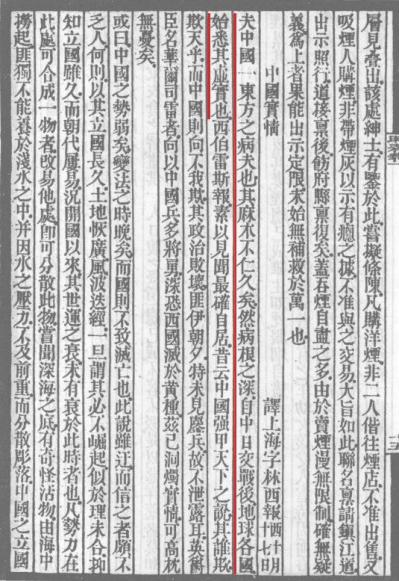 層見疊出該處紳士有鑒於此嘗擬條陳凡購洋煙非二人偕往煙店不准出售又
吸煙人購煙非帶煙灰以示有癮之據不准與之交易大旨如此聯名稟請鎮江道
出示照行道接稟後飭府縣稟復矣蓋吞煙自盡之多由於賣煙漫無限制確無疑
義為上者果能出示定限未始無補救於萬一也
中國實情 譯上海字林西報
夫中國一東方之病夫也其麻木不仁久矣然病根之深自中日交戰後地球各國
始悉其虛實也西伯雷斯報素以見聞最確自居昔云中國強甲天下之說其誰欺
欺天乎而中國則向不我欺其政治敗壞匪伊朝夕特未見鏖兵故不泄露耳英爵
臣名華爾司雷者向以中國兵多將勇深恐西國滅於黃種茲已洞燭實情可高枕
無憂矣
或曰中國之勢弱矣變法之時晚矣而國則不致滅亡也此說雖迂而信之者頗不
乏人何則以其立國長久土地恢廣風波迭經一旦謂其必不崛起似於理未合抑
知立國雖久而朝代屢易況開國以來其世運之衰未有衰於此時者也凡勢力在
此處可合成一物者改易他處卽可分散此物嘗聞深海之底有奇怪活物由海中
撈起匪獨不能養於淺水之中幷因水之壓力不及前重而分散彫落中國之立國